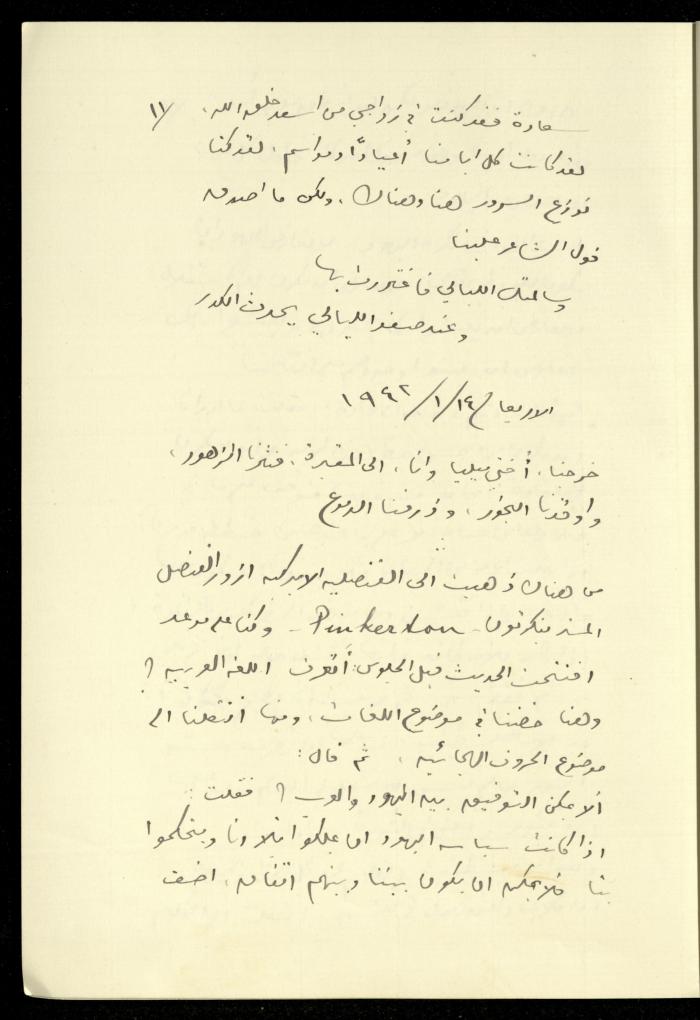 ١١/
سعادة فقد كنت في زواجي من اسعد خلق الله،
لقد كانت كل ايامنا أعيادًا ومواسم، لقد كنا
نوزع السرور هنا وهناك، ولكن ما اصدق
قول الشاعر علينا
وسالمتك الليالي فاغتررت بها
وعند صفو الليالي يحدث الكدر
الاربعا ١٤/ ١/ ١٩٤٢
خرجنا، أختي ميليا وانا، الى المقبرة، فنثرنا الزهور،
واوقدنا البخور، وذرفنا الدموع
من هناك ذهبت الى القنصليه الاميركيه ازور القنصل
المستر بنكرتون - Pinkerton - وكنا على موعد
افتتحت الحديث قبل الجلوس: أتعرف اللغه العربيه ؟
وهنا خضنا في موضوع اللغات، ومنها انتقلنا الى
موضوع الحروف الهجائيه، ثم قال:
ألا يمكن التوفيق بين اليهود والعرب ؟ فقلت:
اذا كانت سياسه اليهود ان يملكوا بلادنا ويتحكموا
بنا فلا يمكن ان يكون بيننا وبينهم اتفاق، اضف